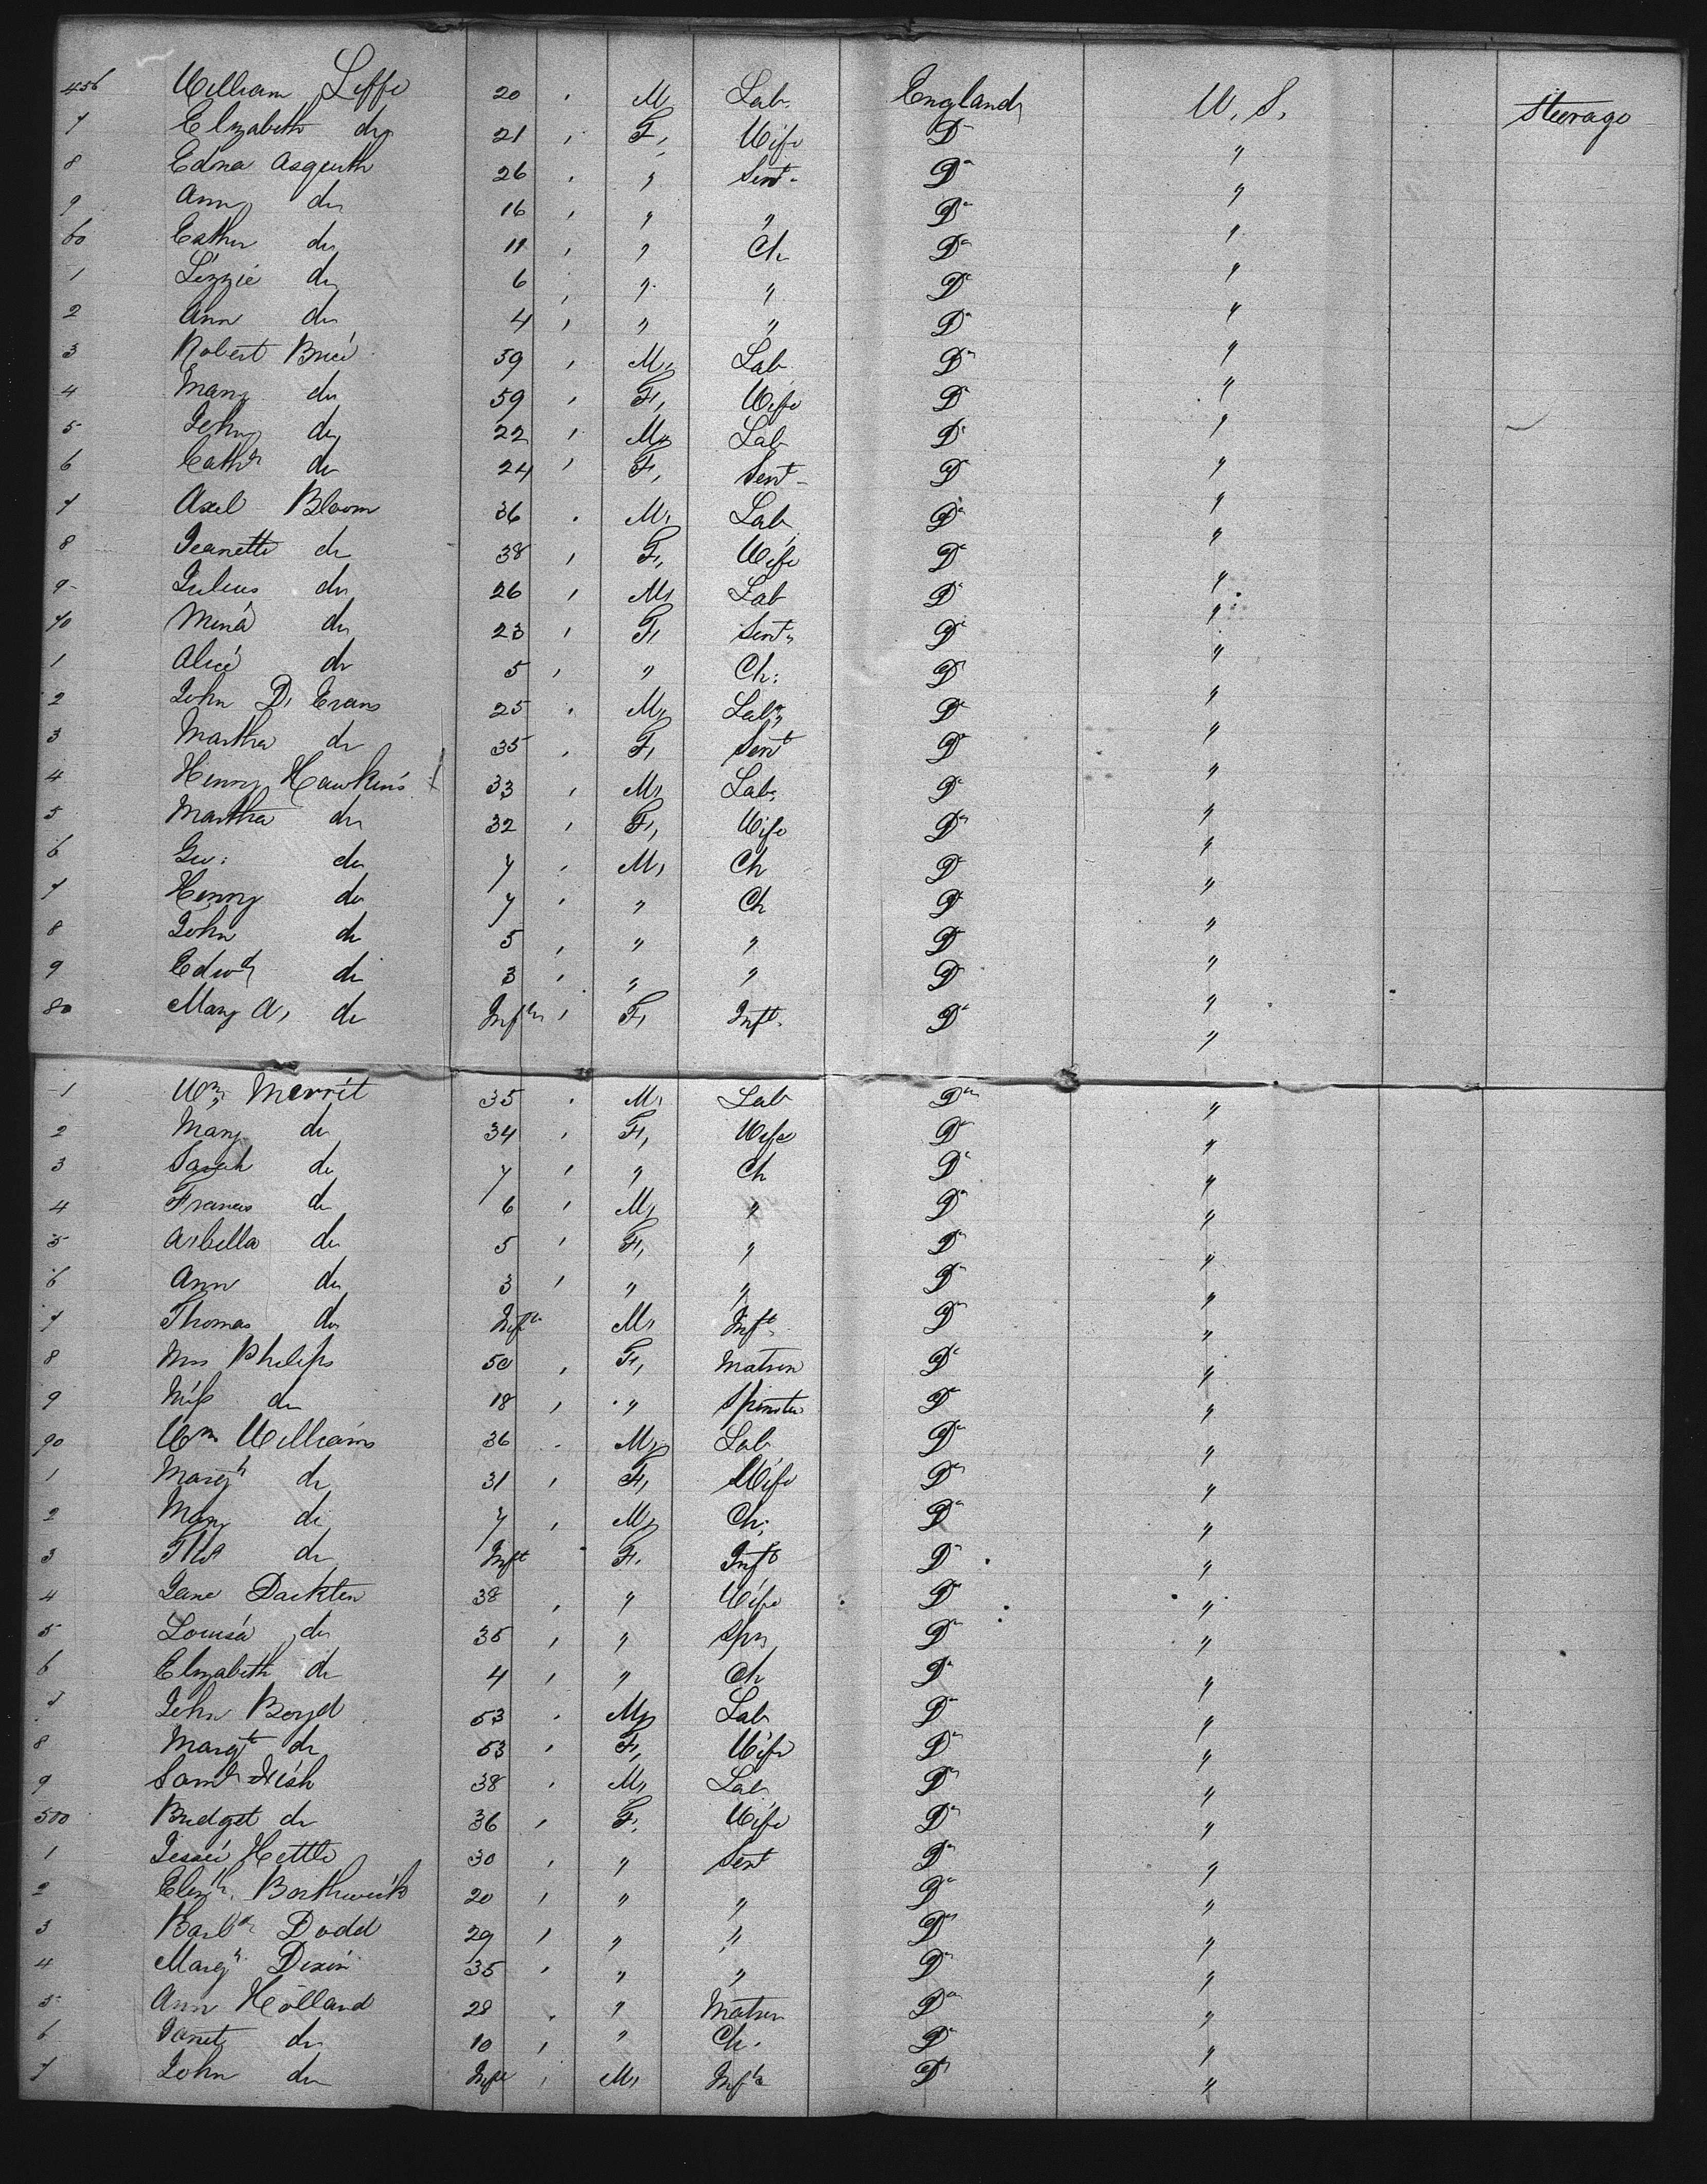 456 William Leffe 20 " M, Lab. England U, S, Steerage
7 Elizabeth do 21 " F, Wife Do "
8 Edna Asquith 26 " " Servt Do "
9 Ann do 16 " " " Do "
60 Esther do 11 " " Ch Do "
1 Lizzie do 6 " " " Do "
2 Ann do 4 " " " Do "
3 Robert Brice 59 " M, Lab Do "
4 Mary do 59 " F, Wife Do "
5 John do 22 " M, Lab Do "
6 Cathn do 24 " F, Servt Do "
7 Axel Bloom 36 " M, Lab Do "
8 Jeanette do 38 " F, Wife Do "
9 Julius do 26 " M, Lab Do "
70 Mina do 23 " F, Servt Do "
1 Alice do 5 " " Ch: Do "
2 John D, Evans 25 " M, Labr Do "
3 Martha do 35 " F, Servt Do "
4 Henry Hawkins 33 " M, Lab, Do "
5 Martha do 32 " F, Wife Do "
6 Geo: do 7 " M, Ch Do "
7 Henry do 7 " " Ch Do "
8 John do 5 " " " Do "
9 Edwd do 3 " " " Do "
80 Mary A, do Inft " F, Inft. Do "
1 Wm Merrit 35 " M, Lab Do "
2 Mary do 34 " F, Wife Do "
3 Sarah do 7 " " Ch Do "
4 Francis do 6 " M, " Do "
5 Arbella do 5 " F, " Do "
6 Ann do 3 " " " Do "
7 Thomas do Inft M, Inft Do "
8 Mrs Philips 50 " F, Matron Do "
9 Miss do 18 " " Spinster Do "
90 Wm Williams 36 " M, Lab Do "
1 Margt do 31 " F, Wife Do "
2 Mary do 7 " M, Ch: Do "
3 Thos do Inft " F. Inft Do "
4 Jane 38 " " Wife Do "
5 Louisa do 35 " " Spn Do "
6 Elizabeth do 4 " " Ch Do "
7 John Boyd 53 " M, Lab Do "
8 Margt do 53 " F, Wife Do "
9 Saml 38 " M, Lab Do "
500 Bridget do 36 " F. Wife Do "
1 Jessie Hettle 30 " " Servt Do "
2 Elizh. Borthwick 20 " " " Do "
3 Barba Dodd 29 " " " Do "
4 Margt Dixon 35 " " " Do "
5 Ann Holland 28 " " Matron Do "
6 Janet do 10 " " Ch. Do "
7 John do Inft " M, Inft Do "